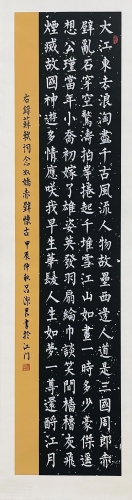 大江東去浪淘盡千古風流人物故壘西邊人道是三國周郎赤
壁亂石穿空驚濤拍岸捲起千堆雪江山如畫一時多少豪傑遥
想公瑾當年小喬初嫁了雄姿英發羽扇綸巾談笑間檣櫓灰飛
煙滅故國神遊多情應咲我早生華髮人生如夢一尊還酹江月
右錄蘇軾詞念奴嬌赤壁懷古 甲辰仲秋呂書於江门